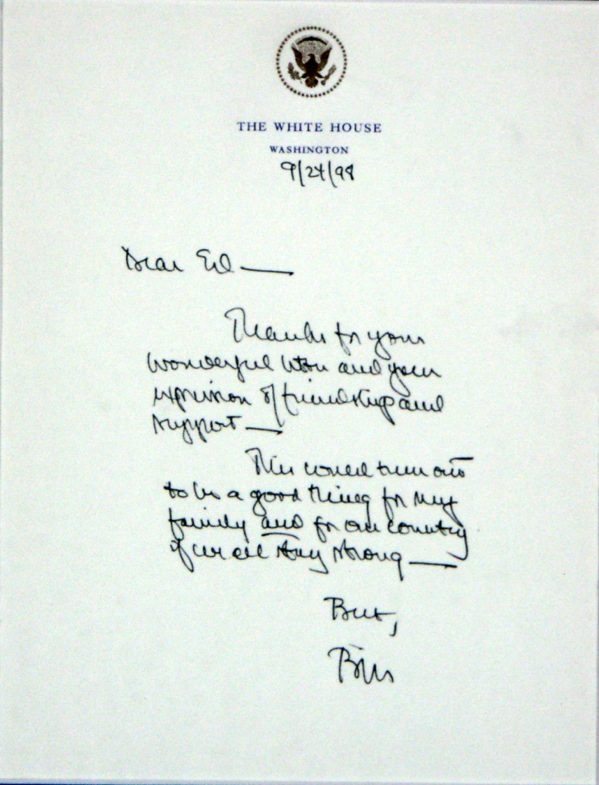 THE WHITE HOUSE
WASHINGTON
9/24/98
Dear Ed —
Thanks for your
wonderful letter and your
expression of friendship and
support —
This could turn out
to be a good thing for my
family and for our country
if we all stay strong —
Best,
Bill